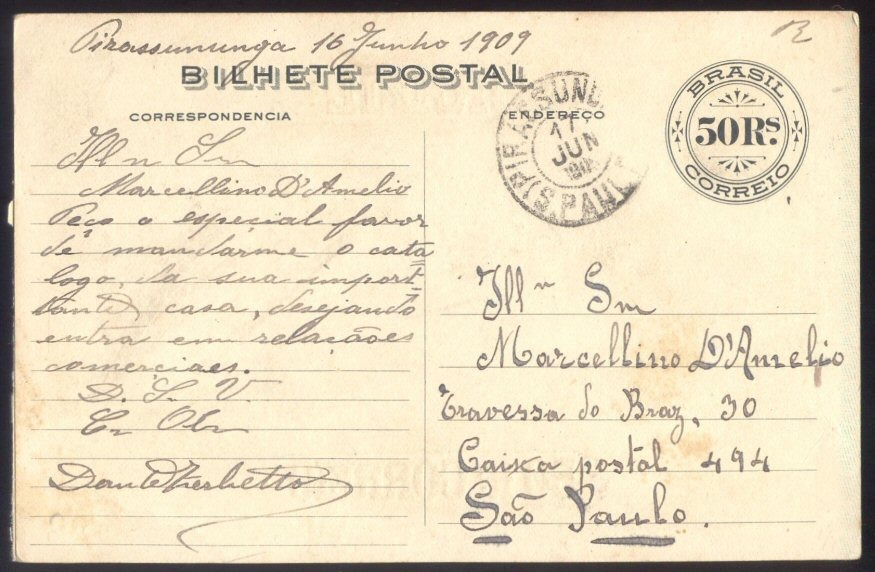 Pirassununga 16 Junho 1909
R
BILHETE POSTAL
CORRESPONDENCIA
ENDEREÇO
BRASIL
50Rs.
CORREIO
PIRASSUNU
17
JUN
(S.PAUL
Illn Snr
Marcellino D'Amelio
Peço o especial favor
de mandarme o cata
logo, da sua import-
tante casa, desejando
entra em relacãoes
comerciaes.
D. S. V.
Cr Obr
Dante
Illn Snr
Marcellino D'Amelio
Travessa do Braz, 30
Caixa postal 494
São Paulo.